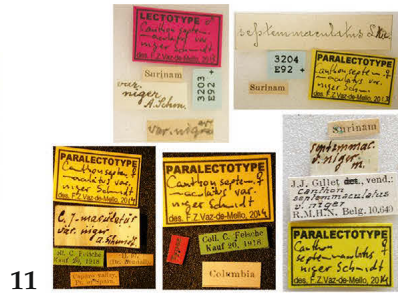 LECTOTYPE ♂
Canthon septem-
maculatus var.
niger Schmidt
des. F.Z. Vaz-de-Mello, 2014
Surinam
3203
E92 +
var.
niger
A. Schm.
var. nigra
septemmaculatus
3204
E92 +
Surinam
PARALECTOTYPE
Canthon septem-
maculatus var.
niger Schmidt
des. F.Z. Vaz-de-Mello, 2014
PARALECTOTYPE
Canthon septem-
maculatus var.
niger Schmidt
des. F.Z. Vaz-de-Mello, 2014
C. 7-maculatus
var. niger
A. Schmidt
Coll. C. Felsche
Kauf 20, 1918
PARALECTOTYPE
Canthon septem-
maculatus var.
niger Schmidt
des. F.Z. Vaz-de-Mello, 2014
Coll. C. Felsche
Kauf 20, 1918
Columbia
Surinam
septemmac.
v. niger
m.
J.J. Gillet des., vend.:
Canthon
septemmaculatus
v. niger
R.M.H.N. Belg. 10,640
PARALECTOTYPE
Canthon
septemmaculatus
niger Schmidt
des. F.Z. Vaz-de-Mello, 2014
11